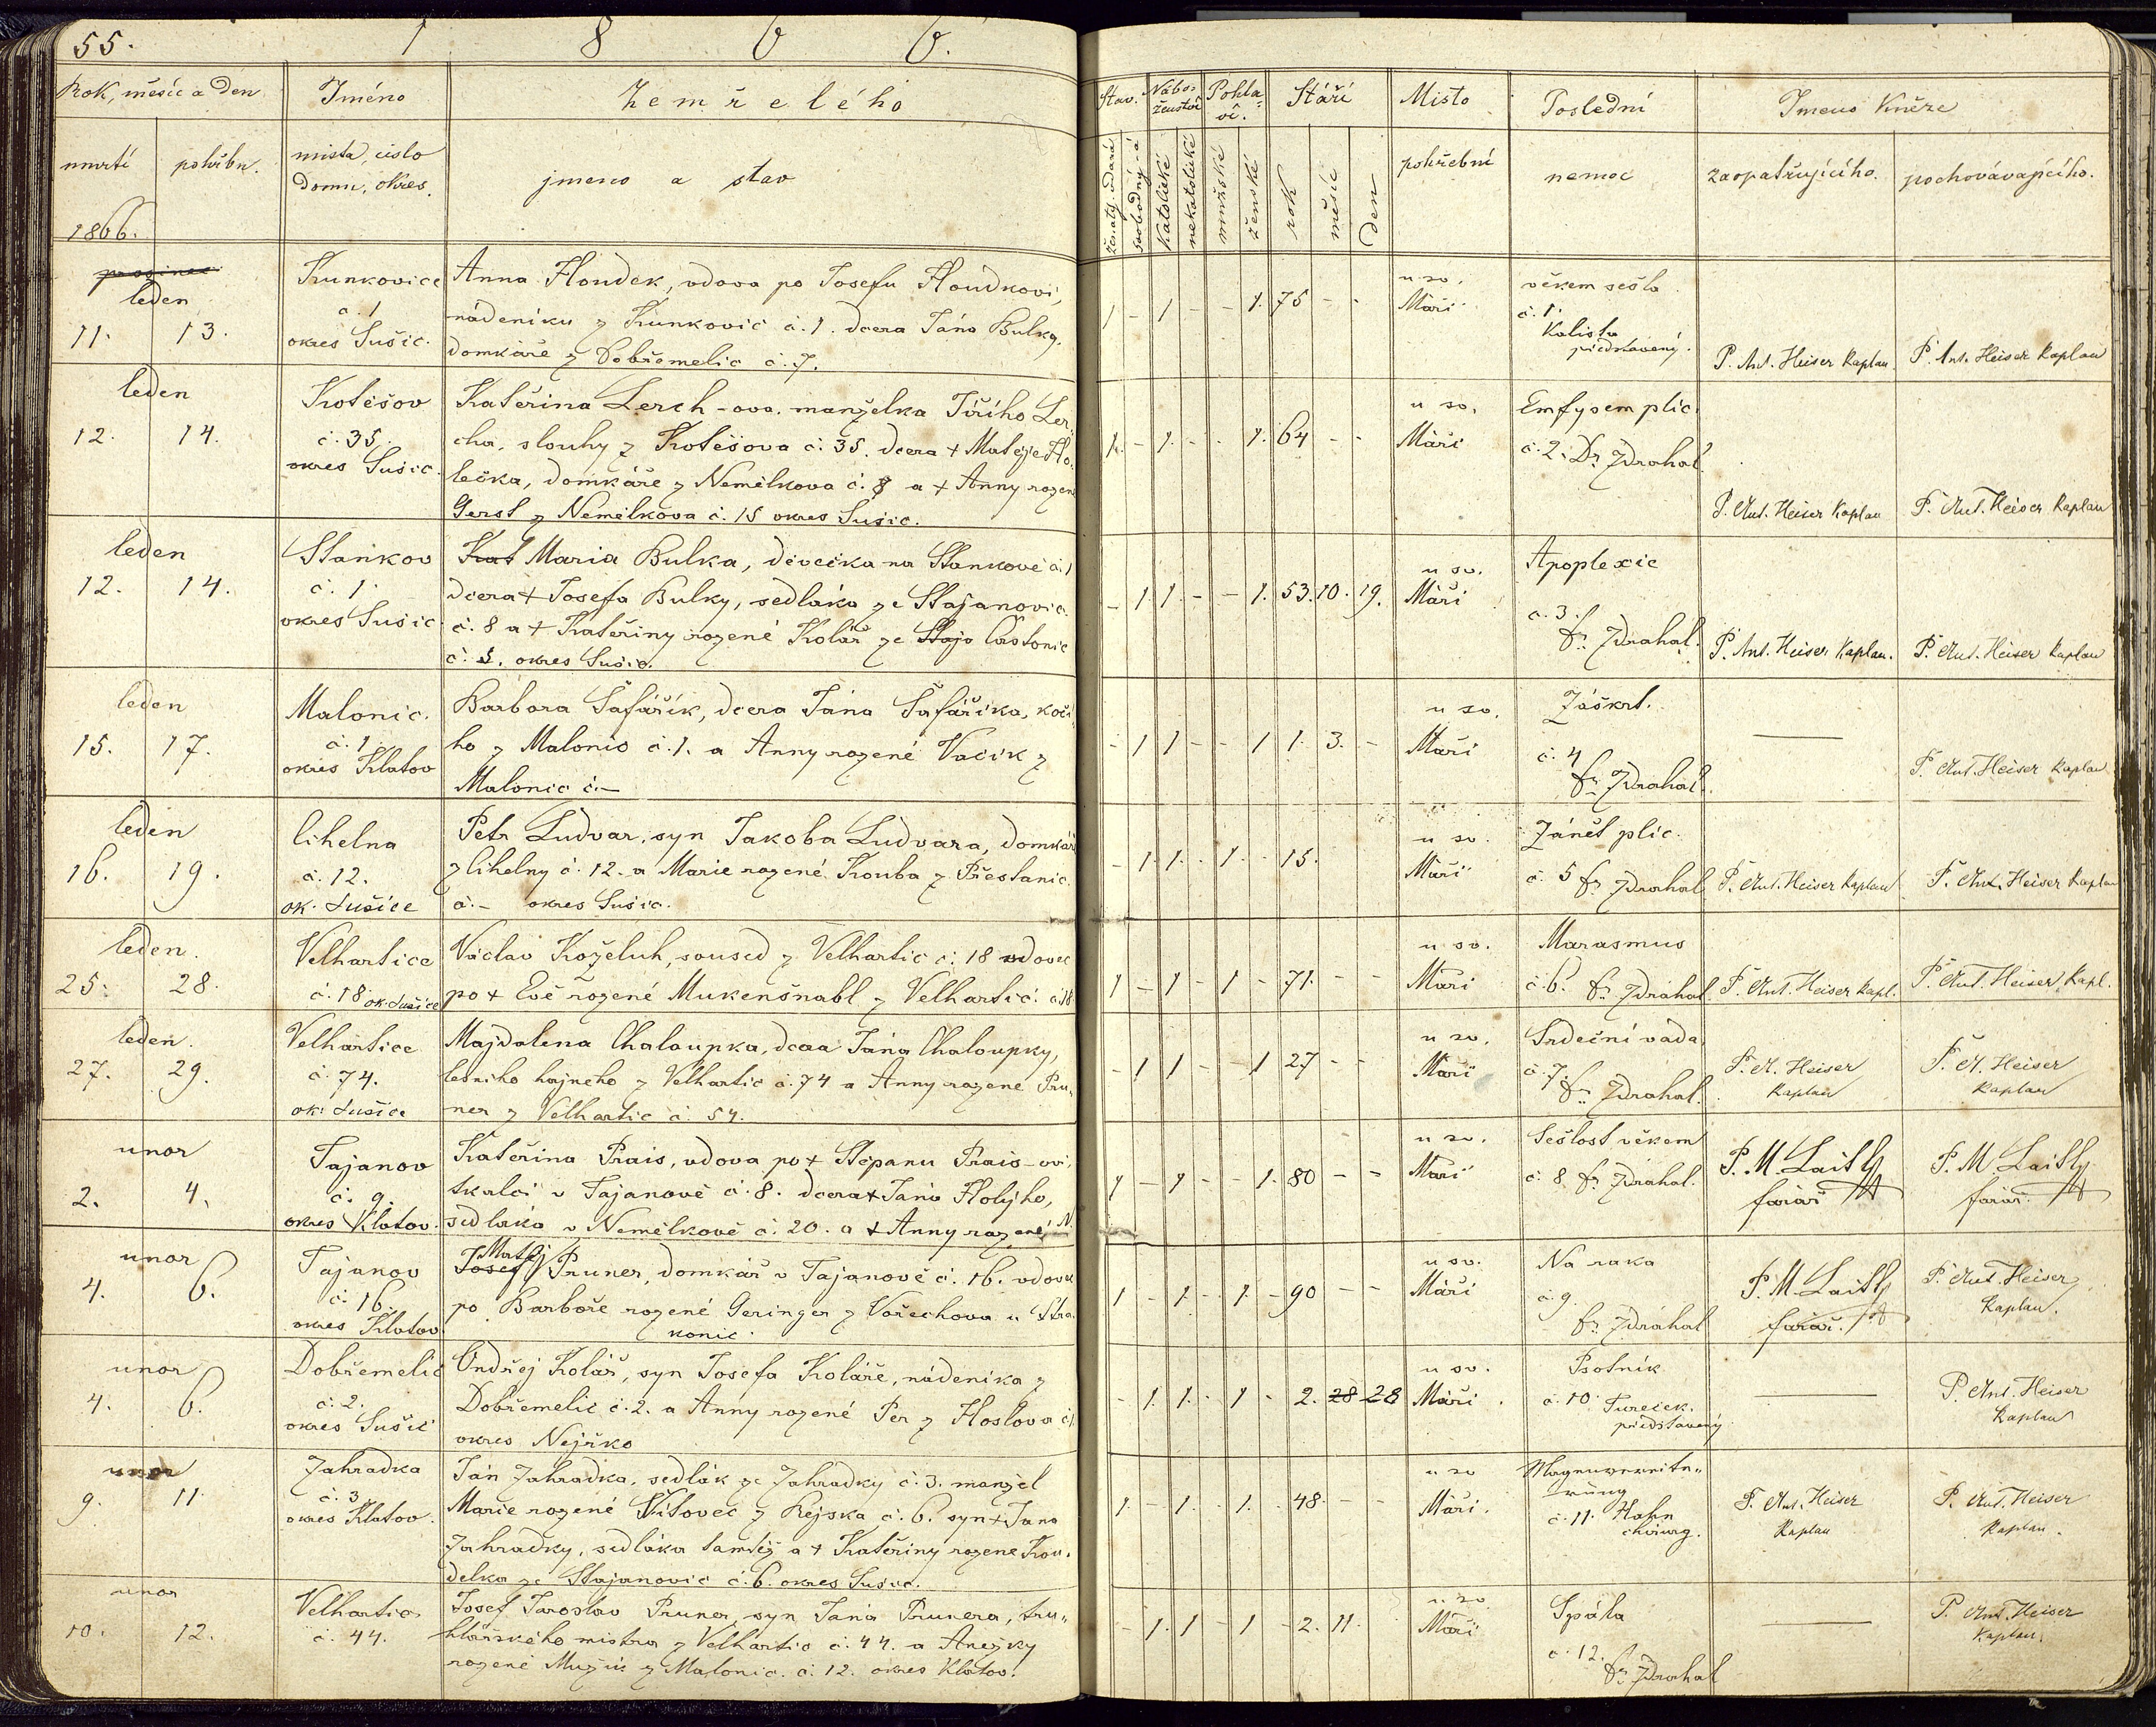 55. 1 8 6 6.
Rok, měsíc a Den
Jméno
Zemřelého
umrtí
pohřbu.
mista, cislo
Domu, okres.
jmeno a stav
1866.
Stav.
Nábo-
ženstvi
Pohla-
ví.
Stáří
Misto
Poslední
Imeno Kněze
ženatý, vdaná
svobodný-á
Katolické
nekatolické
mužské
ženské
rok
měsíc
den
pohřební
nemoc
zaopatřujícího.
pochovávajícího.
prosinec
leden
11. 13.
Kunkovice
č. 1
okres Sušic.
Anna Houdek, vdova po Josefu Houdkovi,
nádeníku z Kunkovic č. 1. dcera Jána Bulky,
domkáře z Dobřemelic č. 7.
1 - 1 - - 1. 75 - -
u sv.
Máří
věkem sešla
č. 1.
Kalista
představený.
P. Ant. Heiser Kaplan.
P. Ant. Heiser Kaplan
leden
12. 14.
Kotěšov
č. 35.
okres Sušic.
Kateřina Lerch-ova. manželka Jiřího Ler-
cha, slouhy z Kotěšova č. 35. dcera + Matěje Ho-
lečka, domkáře z Nemělkova č. 8 a + Anny rozen
Gerst z Nemělkova č. 15 okres Sušic.
1. - 1. - - 1. 64 - -
u sv.
Máří
Emfysem plic.
č. 2. Dr. Zdrahal
P. Ant. Heiser Kaplan
P. Ant. Heiser Kaplan
leden
12. 14.
Stankov
č. 1.
okres Sušic.
Kat Maria Bulka, děvečka na Stankově č. 1
dcera + Josefa Bulky, sedláka ze Stajanovic
č. 8 a + Kateřiny rozené Kolář ze Staja Častonic
č. 5. okres Sušic.
- 1. 1. - - 1. 53. 10. 19.
u sv.
Máří
Apoplexie
č. 3.
Zdrahal.
P. Ant. Heiser Kaplan.
P. Ant. Heiser Kaplan
leden
15. 17.
Malonic.
č. 1.
okres Klatov
Barbora Šafářík, dcera Jána Šafáříka, kočí-
ho z Malonic č. 1. a Anny rozené Vacik z
Malonic č. -
- 1 1 - - 1 1. 3. -
u sv.
Máří
Záškrt.
č. 4
Zdrahal.
P. Ant. Heiser Kaplan
leden
16. 19.
Cihelna
č. 12.
ok. Sušice
Petr Ludvar, syn Jakoba Ludvara, domkáře
z Cihelny č. 12. a Marie rozené Kouba z Přestanic
č. - okres Sušic.
- 1. 1. - 1. - 15.
u sv.
Máří
Zánět plic.
č. 5 Zdrahal
P. Ant. Heiser Kaplan
P. Ant. Heiser Kaplan
leden.
25. 28.
Velhartice
č. 18 ok. Sušice
Václav Koželuh, soused z Velhartic č. 18 vdovec
po + Evě rozené Mukenšnabl z Velhartic č. 18
1 - 1 - 1 - 71. - -
u sv.
Máří
Marasmus
č. 6. Zdrahal
P. Ant. Heiser Kapl.
P. Ant. Heiser Kapl.
leden.
27. 29.
Velhartice
č. 74.
ok. Sušice
Majdalena Chaloupka, dcera Jána Chaloupky,
lesního hajného z Velhartic č. 74 a Anny rozené Pru-
ner z Velhartic č. 54.
- 1 1 - - 1 27 - -
u sv.
Máří
Srdeční váda
č. 7.
Zdrahal.
P. A. Heiser
Kaplan
P. A. Heiser
Kaplan
unor
2. 4.
Tajanov
č. 9.
okres Klatov.
Kateřina Prais, vdova po + Štěpanu Prais-ovi,
tkalci v Tajanově č. 8. dcera + Jána Holýho,
sedláka v Nemělkově č. 20. a + Anny rozené N.
1 - 1 - - 1. 80 - -
u sv.
Máří
Sešlost věkem
č. 8 Zdrahal.
P. M. Laitl
farář
P. M. Laitl
farář.
unor
4. 6.
Tajanov
č. 16.
okres Klatov.
Matěj
Josef Pruner, domkář v Tajanově č. 16. vdovec
po Barboře rozené Geringer z Vořechova u Stra-
konic.
1 - 1. - 1. - 90 - -
u sv.
Máří
Na raka
č. 9.
Zdrahal
P. M. Laitl
farář.
P. Ant. Heiser
Kaplan.
unor
4. 6.
Dobřemelic
č. 2.
okres Sušic
Ondřej Kolář, syn Josefa Koláře, nádeníka z
Dobřemelic č. 2. a Anny rozené Per z Hostova č.
okres Nejrsko
- 1. 1. - 1 - 2. 28 28
u sv.
Máří
Psotník
č. 10. Tureček.
představený
P. Ant. Heiser
Kaplan
unor
9. 11.
Zahradka
č. 3.
okres Klatov.
Ján Zahradka, sedlák ze Zahrádky č. 3. manžel
Marie rozené Vítovec z Rejska č. 6. syn + Jana
Zahradky, sedláka tamtéž a + Kateřiny rozené Kou-
delka ze Stajanovic č. 6. okres Sušic.
1. - 1. - 1. - 48. - -
u sv
Máří.
č. 11. Hahn
chirurg.
P. Ant. Heiser
Kaplan
P. Ant. Heiser
Kaplan.
unor
10. 12.
Velhartic
č. 44.
Josef Jaroslav Pruner, syn Jana Prunera, tru-
hlářského mistra z Velhartic č. 44. a Anežky
rozené Mužik z Malonic. č. 12. okres Klatov.
- 1. 1 - 1 - 2. 11.
u sv.
Máří
Spála
č. 12.
Zdrahal
P. Ant. Heiser
Kaplan.